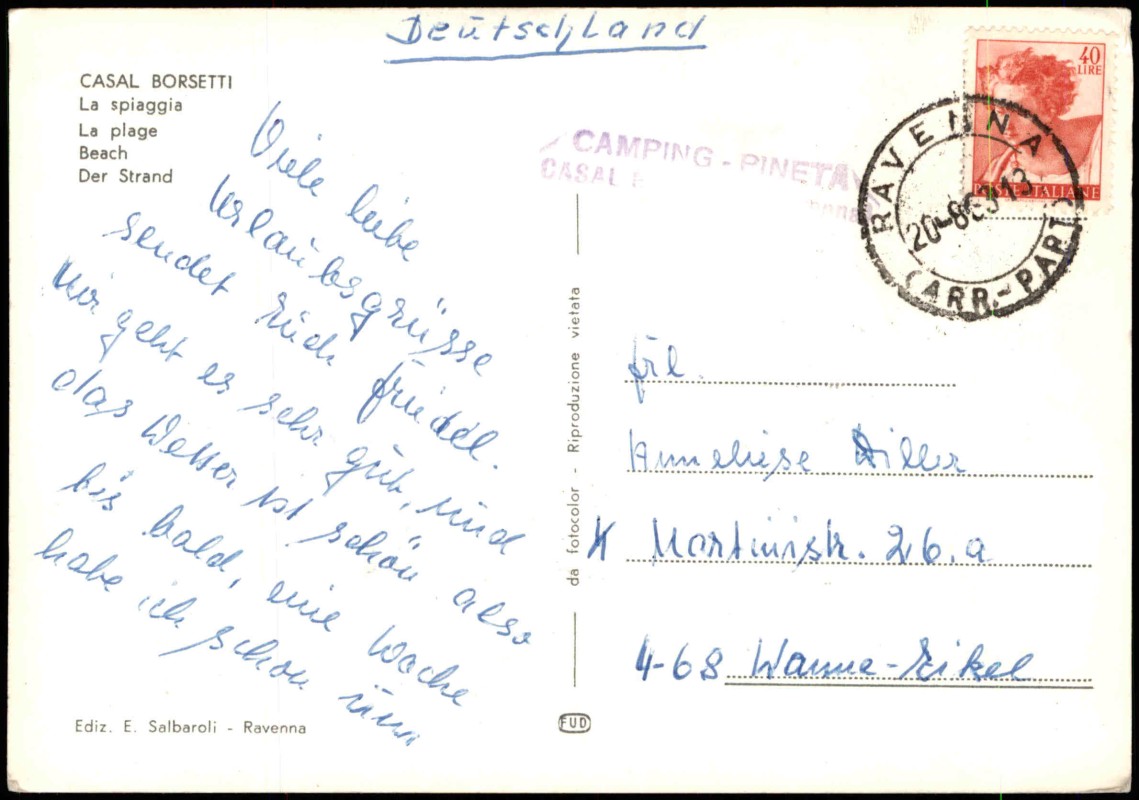 Deutschland
CASAL BORSETTI
La spiaggia
La plage
Beach
Der Strand
Viele liebe
Urlaubsgrüsse
sendet Euch Friedel.
Mir geht es sehr gut, und
das Wetter ist schön also
bis bald, eine Woche
habe ich schon rum
Ediz. E. Salbaroli - Ravenna
da fotocolor - Riproduzione vietata
FUD
CAMPING - PINETA
CASAL
40
LIRE
POSTE ITALIANE
RAVENNA
20-8 13
(ARR.-PART
Frl.
Anneliese Diller
Martinistr. 26.a
4-68 Wanne-Eikel